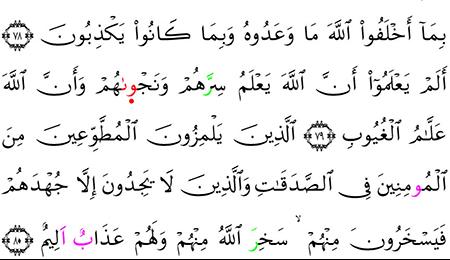 بِمَآ أَخْلَفُواْ ٱللَّهَ مَا وَعَدُوهُ وَبِمَا كَانُواْ يَكْذِبُونَ ٧٨
أَلَمْ يَعْلَمُوٓاْ أَنَّ ٱللَّهَ يَعْلَمُ سِرَّهُمْ وَنَجْوىٰهُمْ وَأَنَّ ٱللَّهَ
عَلَّٰمُ ٱلْغُيُوبِ ٧٩ ٱلَّذِينَ يَلْمِزُونَ ٱلْمُطَّوِّعِينَ مِنَ
ٱلْمُومِنِينَ فِى ٱلصَّدَقَٰتِ وَٱلَّذِينَ لَا يَجِدُونَ إِلَّا جُهْدَهُمْ
فَيَسْخَرُونَ مِنْهُمْ ۙ سَخِرَ ٱللَّهُ مِنْهُمْ وَلَهُمْ عَذَابٌ اَلِيمٌ ٨٠